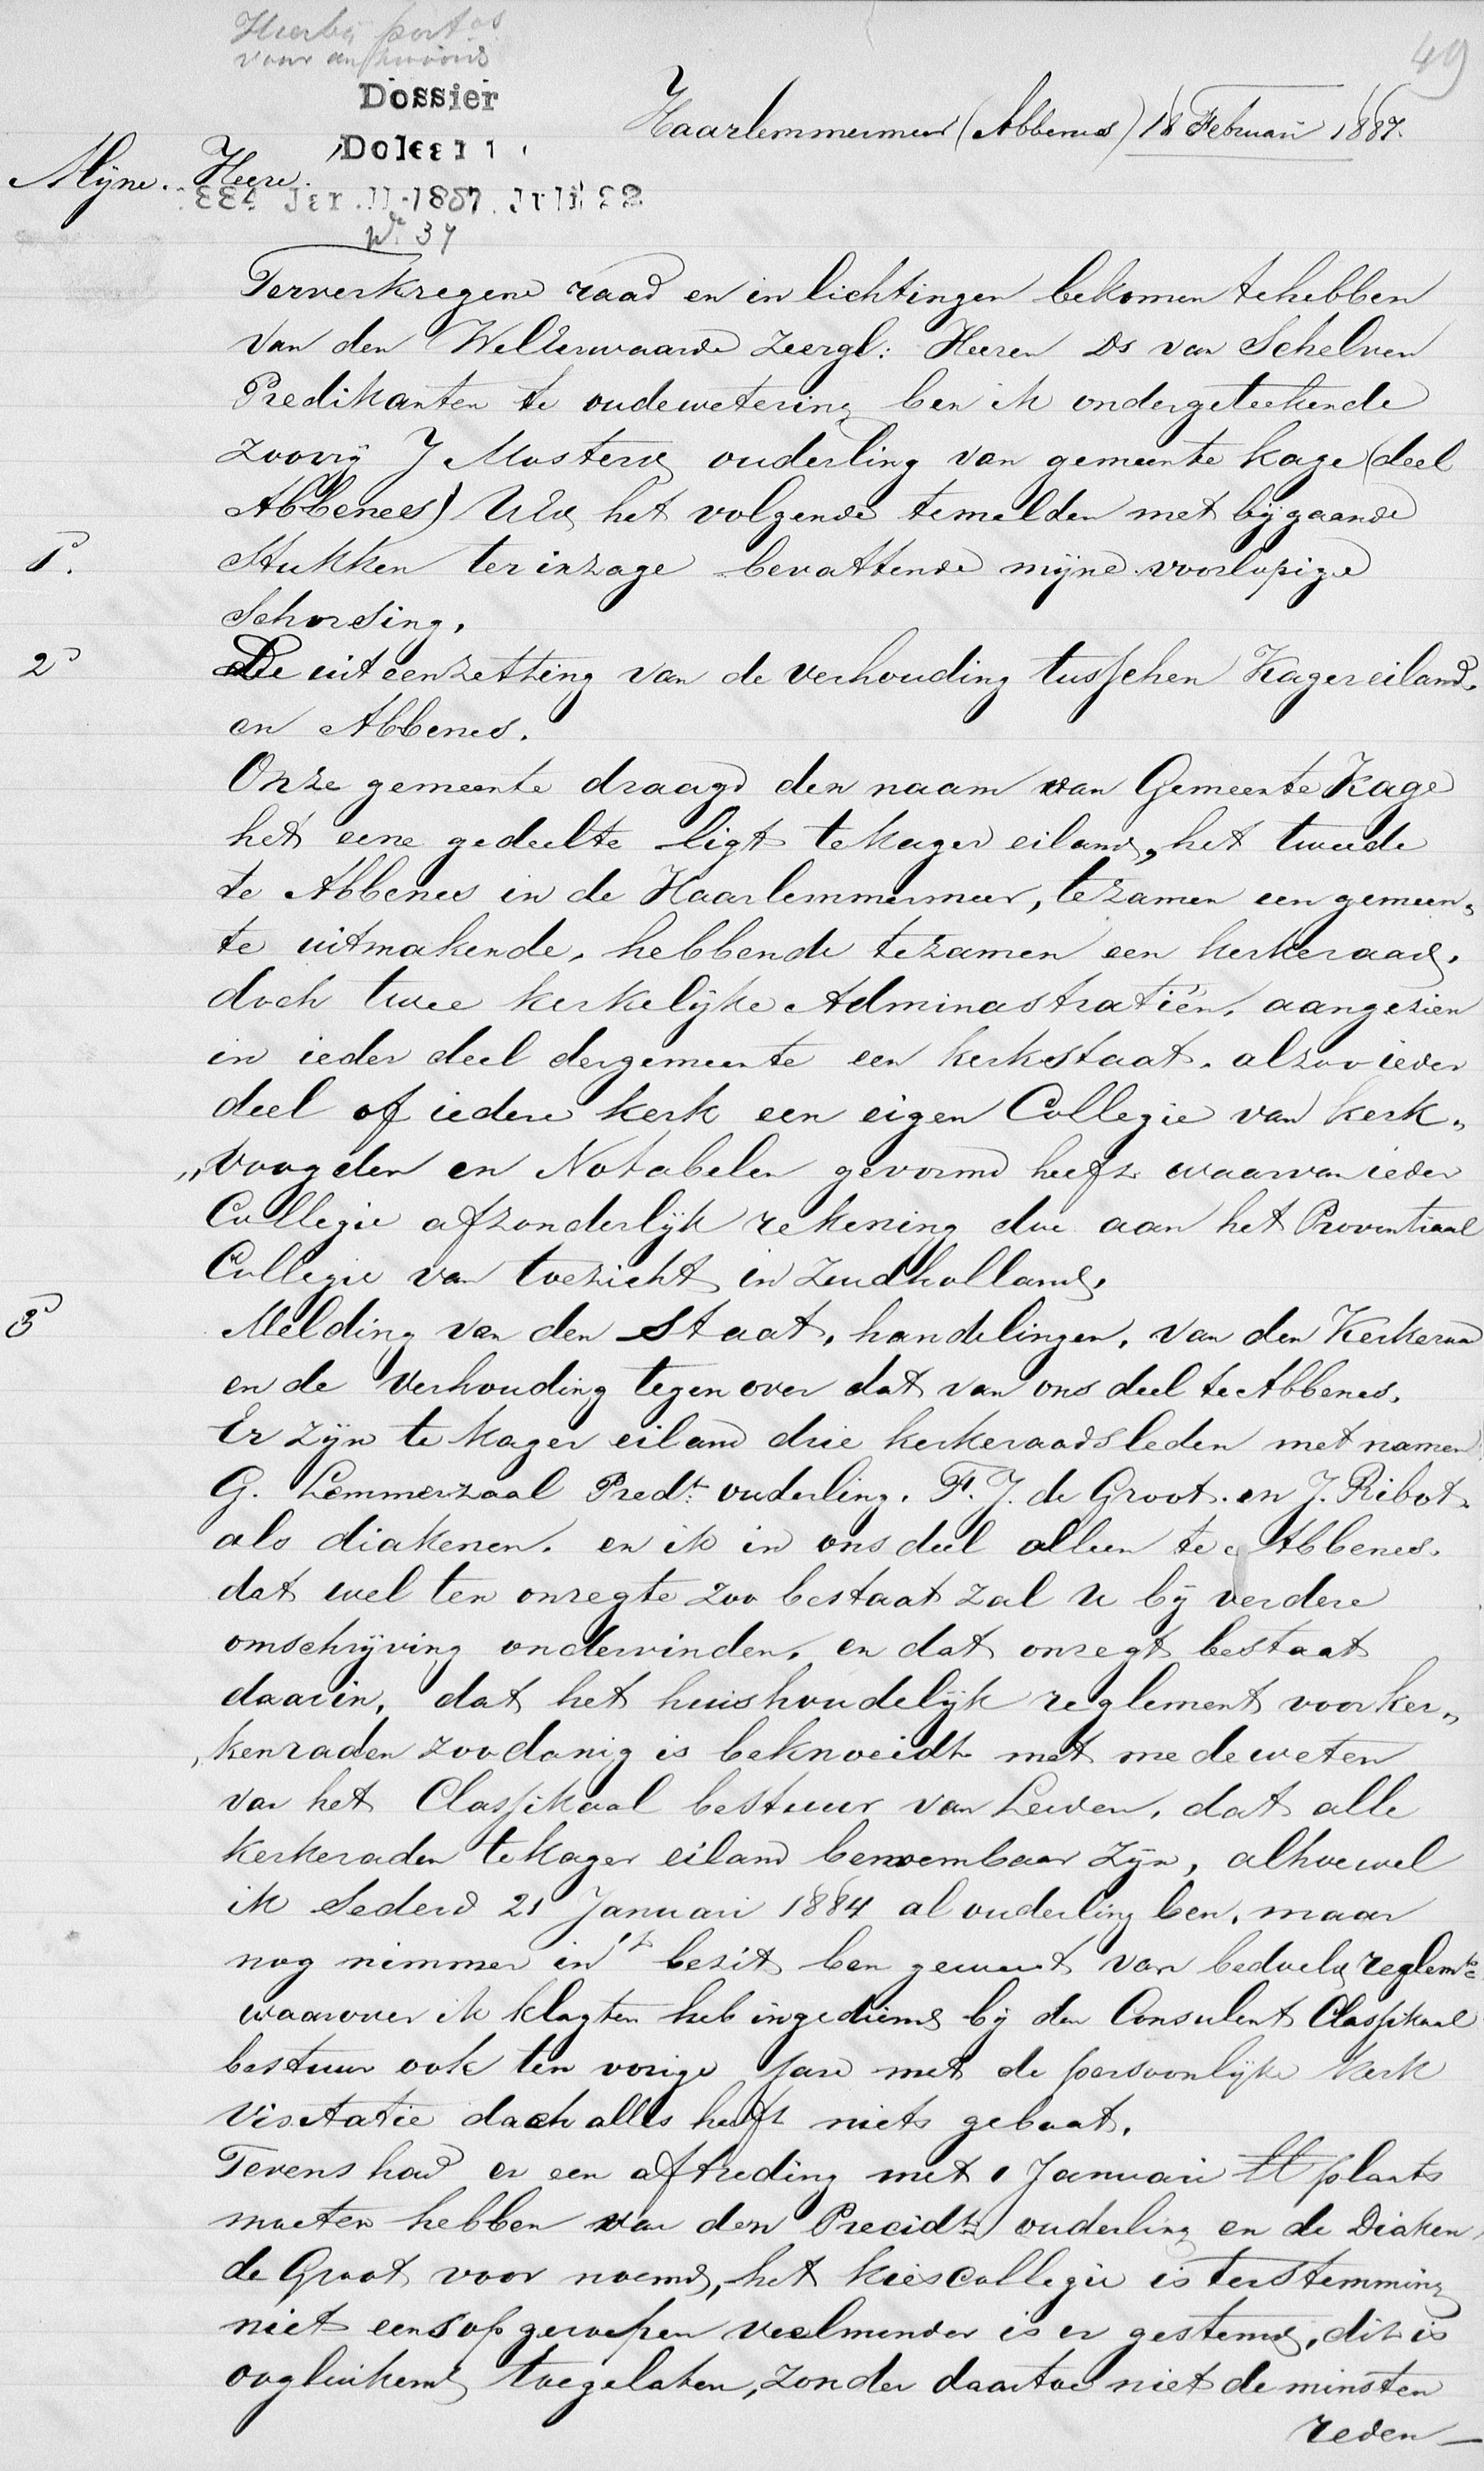 Hierbij port.os
voor antwoord
49
Dossier
Haarlemmermeer (Abbenes) 18 Februari 1887.
Doleer
Mijne. Heere.
1887
No 37
Terverkregene raad en in lichtingen bekomen tehebben
van den WelEerwaarde Zeergl: Heeren Ds van Schelven
Predikanten te oudewetering ben ik ondergeteekende
zoovrij J Mosterd ouderling van gemeente Kage (deel
Abbenees) UEd het volgende temelden met bijgaande
1o.
Stukken terinzage bevattende mijne voorlopige
Schorsing.
2o
De uiteenzetting van de verhouding tusschen Kagereiland.
en Abbenes.
Onze gemeente draagd den naam van Gemeente Kage
het eene gedeelte ligt teKager eiland, het tweede
te Abbenes in de Haarlemmermeer, tezamen een gemeen„
te uitmakende, hebbende tezamen een kerkeraad,
doch twee kerkelijke Adminastratiën, aangezien
in ieder deel dergemeente een kerkstaat. alzoo ieder
deel of iedere kerk een eigen Collegie van kerk„
„voogden en Notabelen gevormd heeft waarvan ieder
Collegie afzonderlijk rekening doe aan het Proventiaal
Collegie van toezicht in Zuidholland.
3o
Melding van den Staat, handelingen, van den Kerkeraad
en de Verhouding tegenover dat van ons deel te Abbenes.
Er zijn te Kager eiland drie kerkeraadsleden met namen
G. Lemmerzaal Predt. ouderling. F. J. de Groot. en J. Ribot.
als diakenen. en ik in ons deel alleen te Abbenes.
dat wel ten onregte zoo bestaat zal u bij verdere
omschrijving ondervinden, en dat onregt bestaat
daarin, dat het huishoudelijk reglement voor ker„
„kenraden zoodanig is beknoeidt met medeweten
van het Classikaal bestuur van Leiden, dat alle
kerkeraden teKager eiland benoembaar zijn, alhoewel
ik Sederd 21 Januari 1884 al ouderling ben, maar
nog nimmer in 't bezit ben geweest van bedoeld reglemt.
waarover ik klagten heb ingediend bij den Consulent Classikaal
bestuur ook ten vorige jare met de persoonlijke kerk
Visetatie doch alles heeft niets gebaat.
Tevens had er een aftreding met 1 Januari ll plaats
moeten hebben van den Precidt. ouderling en de Diaken
de Groot voor noemd, het kiescollegie is terstemming
niet eens opgeroepen veelminder is er gestemd, dit is
oogluikend toegelaten, zonder daartoe niet de minsten
reden—